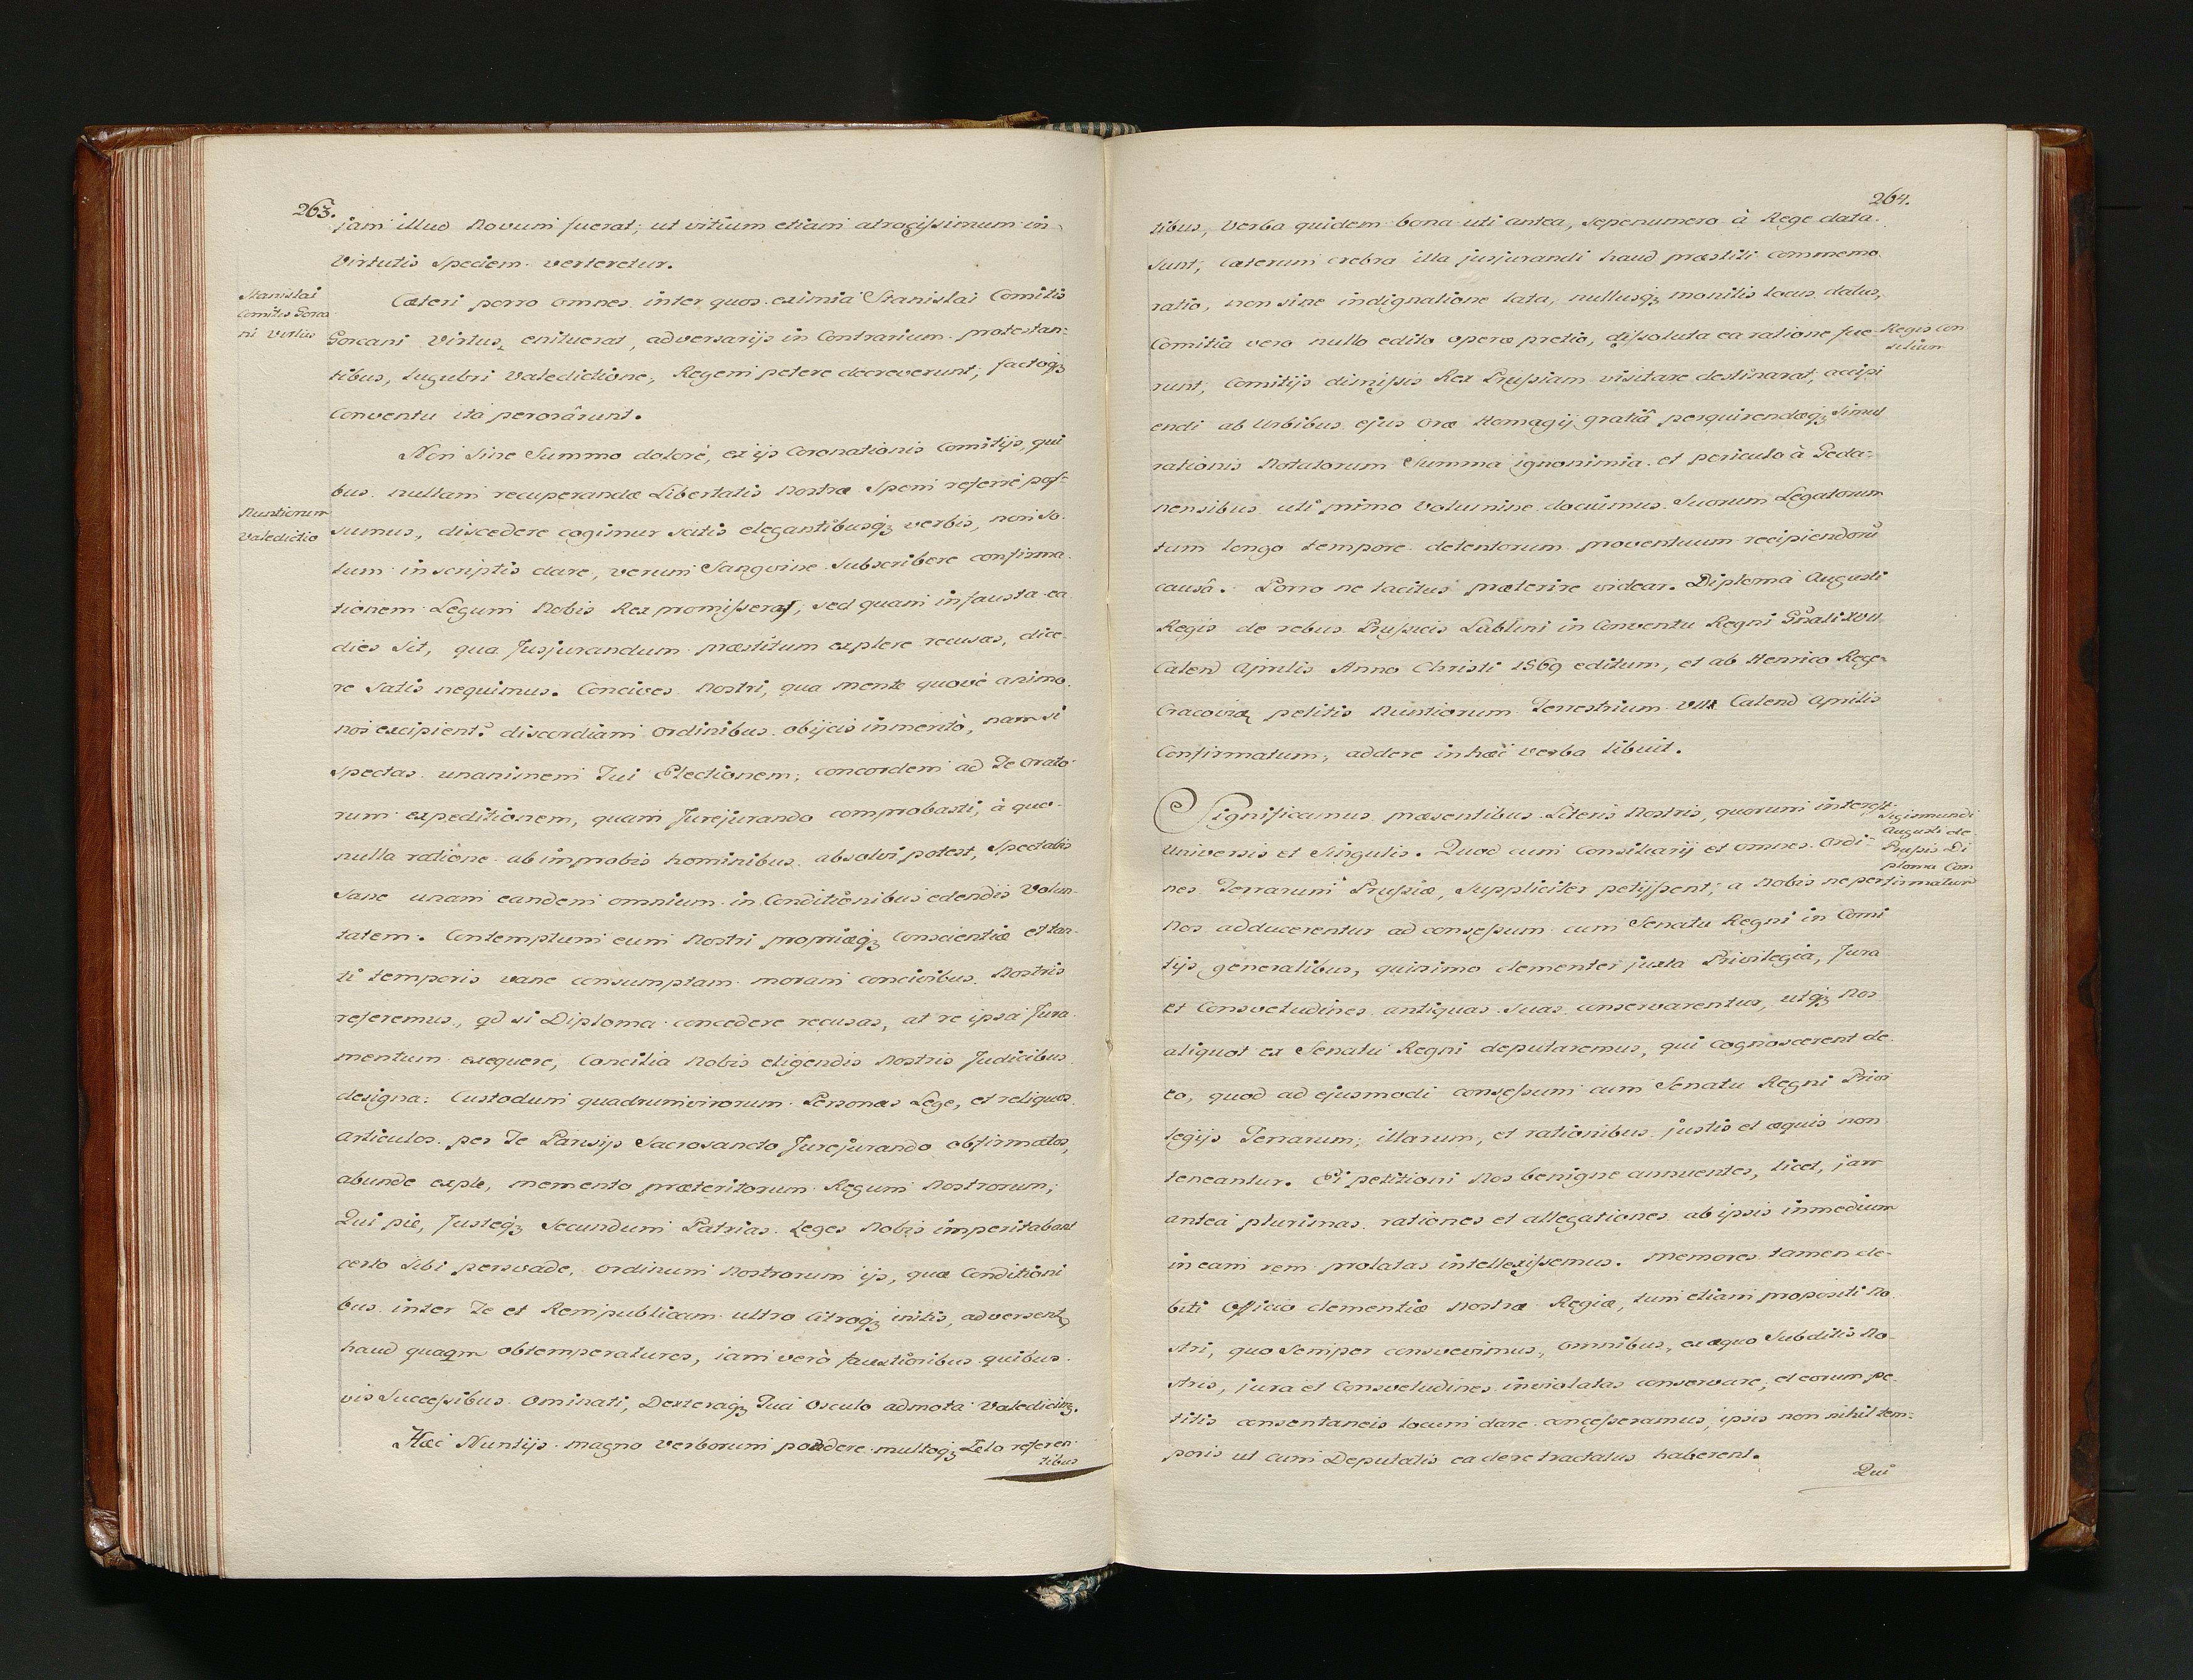 263.
jam illud Novum fuerat; ut vitium etiam atrocissimum in
Virtutis Speciem verteretur.
Stanislai
Comitis Gorca
ni Virtus
Cæteri porro omnes inter quos eximia Stanislai Comitis
Gorcani Virtus, enituerat, adversarijs in Contrarium protestan-
tibus, lugubri Valedictione, Regem petere decreverunt; factoq3
Conventu ita perorârunt.
Non Sine Summo dolore, ex ijs Coronationis Comitijs, qui
bus nullam recuperandæ Libertatis Nostræ Spem referre pos-
Nuntiorum
Valedictio
sumus, discedere cogimur scitis elegantibusq3 verbis, non so
lum in scriptis dare, verum Sangvine Subscribere confirma
tionem Legum Nobis Rex promisserat; sed quam infausta ea
dies Sit, qua Jusjurandum præstitum explere recusas, dice
re Satis nequimus. Concives Nostri, qua mente quove animo
nos excipient? discordiam Ordinibus obijcis inmeritò, nam si
spectas unanimem Tui Electionem; concordem ad Te Orato
rum expeditionem, quam Jurejurando comprobasti, à quo
nulla ratione ab improbis hominibus absolvi potest, Spectabis
Sane unam eandem omnium in Conditionibus edendis Volun-
tatem. Contemptum eum Nostri propriæq3 Conscientiæ et tan-
ti temporis vane consumptam moram concivibus Nostris
referemus, qd si Diploma concedere recusas, at re ipsa Jura
mentum exequere, Concilia Nobis eligendis Nostris Judicibus
designa: Custodum quadrumvirorum Personas Lege, et reliquos
Articulos per Te Parisijs Sacrosancto Jurejurando obfirmatos,
abunde exple, memento præteritorum Regum Nostrorum;
Qui pie, Justeq3 Secundum Patrias Leges Nobis imperitabant
certo Sibi persvade, Ordinum Nostrorum ijs, quæ Conditioni
bus inter Te et Rempublicam ultro Citroq3 initis, adversent,
haud quaqm obtemperatures, iam verò faustioribus quibus
vis Successibus Ominati, Dexteraq3 Tua Osculo admota Valedicim3.
Hæc Nuntijs magno verborum pondere multoq3 Zelo referen
tibus
264.
tibus, Verba quidem bona uti antea, sepenumero à Rege data
Sunt, Cæterum crebra illa jusjurandi haud præstiti Commemo
ratio, non sine indignatione lata, nullusq3 monitis locus datus,
Comitia vero nullo edito operæ pretio, dissoluta ea ratione fue
Regis Con
silium
runt; Comitijs dimissis Rex Prussiam visitare destinarat, accipi
endi ab Urbibus ejus Oræ Homagij gratiâ perquirendæq3 Simul
rationis Notatorum Summa ignonimia et periculo à Geda-
nensibus uti primo Volumine docuimus Suorum Legatorum
tum longo tempore detentorum proventuum recipiendorũ
causâ. Porro ne tacitus præterire videar. Diploma Augusti
Regis de rebus Prussicis Lablini in Conventu Regni Gnali XVII
Calend Aprilis Anno Christi 1569 editum, et ab Henrico Rege
Cracoviæ petitis Nuntiorum Terrestrium VIII Calend Aprilis
Confirmatum, addere in hæc verba libuit.
Significamus præsentibus Literis Nostris, quorum interest
Sigismundi
Augusti de
Prussis Di
ploma Con
firmatum
universis et Singulis. Quod cum Consiliarij et omnes Ordi-
nes Terrarum Prussiæ, Suppliciter petijssent; a Nobis ne per
Nos adducerentur ad consessum cum Senatu Regni in Comi
tijs generalibus, quinimo clementer juxta Privilegia, Jura
et Consvetudines antiquas suas conservarentur, utq3 Nos
aliquot ex Senatu Regni deputaremus, qui Cognoscerent de
eo, quod ad ejusmodi consessum cum Senatu Regni Privi
legijs Terrarum, illarum, et rationibus justis et æquis non
teneantur. Ei petitioni Nos benigne annuentes, licet, jam
antea plurimas rationes et allegationes ab ipsis inmedium
in eam rem prolatas intellexissemus. Memores tamen de-
biti Officio clementiæ Nostræ Regiæ, tum etiam propositi No
stri, quo Semper consvevimus, omnibus, ex æquo Subditis No-
stris, jura et Consvetudines inviolatas conservare, et eorum pe-
titis consentaneis locum dare concesseramus, ipsis non nihil tem-
poris ut cum Deputatis ea dere tractatus haberent.
Qui